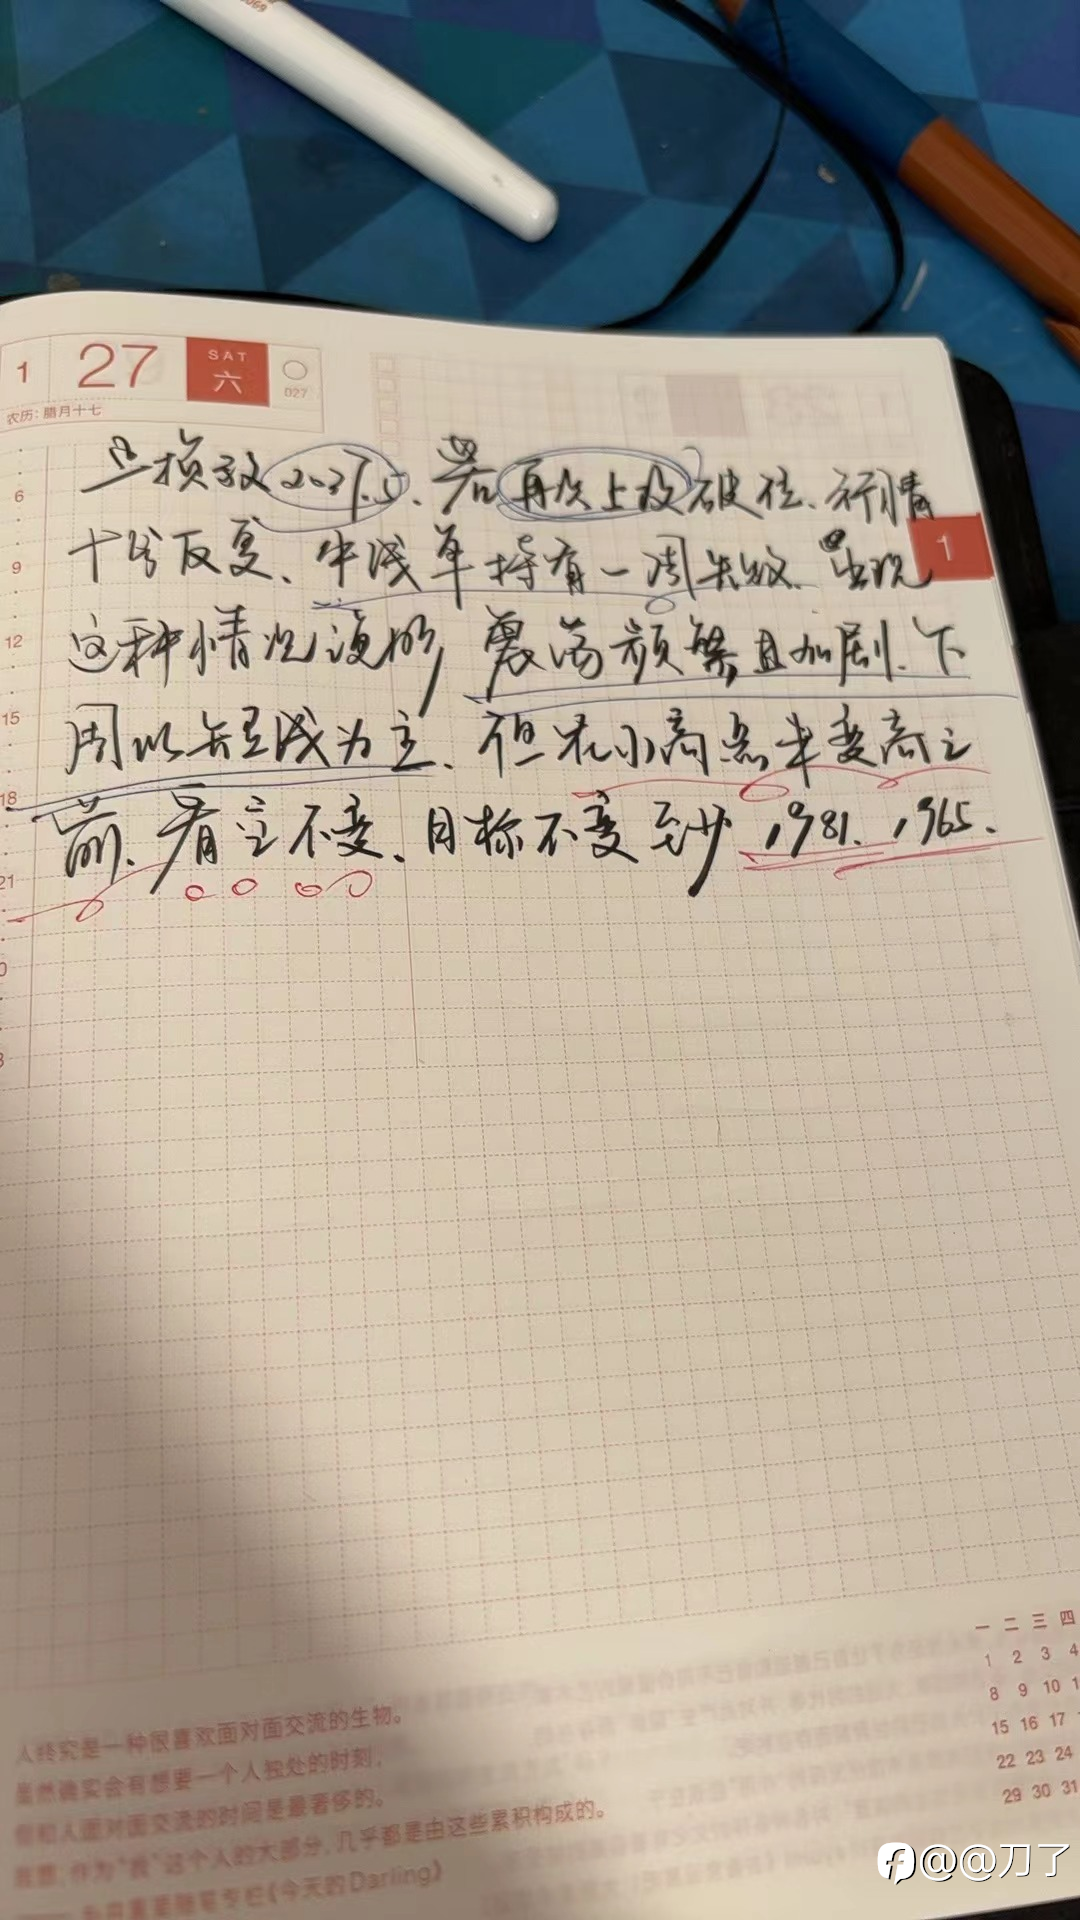 069
1 27 SAT 六 027
农历: 腊月十七
止损放2037.5、若再次上攻破位、行情
十分反复、中浅单持有一周失效、出现
这种情况说明震荡频繁且加剧、下
周以短线为主、但在小高点未变高之
前、看空不变、目标不变至少1981、1965.
1
6
9
12
15
18
21
0
3
人终究是一种很喜欢面对面交流的生物。
虽然确实会有想要一个人独处的时刻,
但和人面对面交流的时间是最奢侈的。
我想,作为“我”这个人的大部分,几乎都是由这些累积构成的。
《今天的Darling》
一 二 三 四
1 2 3 4
8 9 10 1
15 16 17
22 23 24
29 30 31
@@刀了